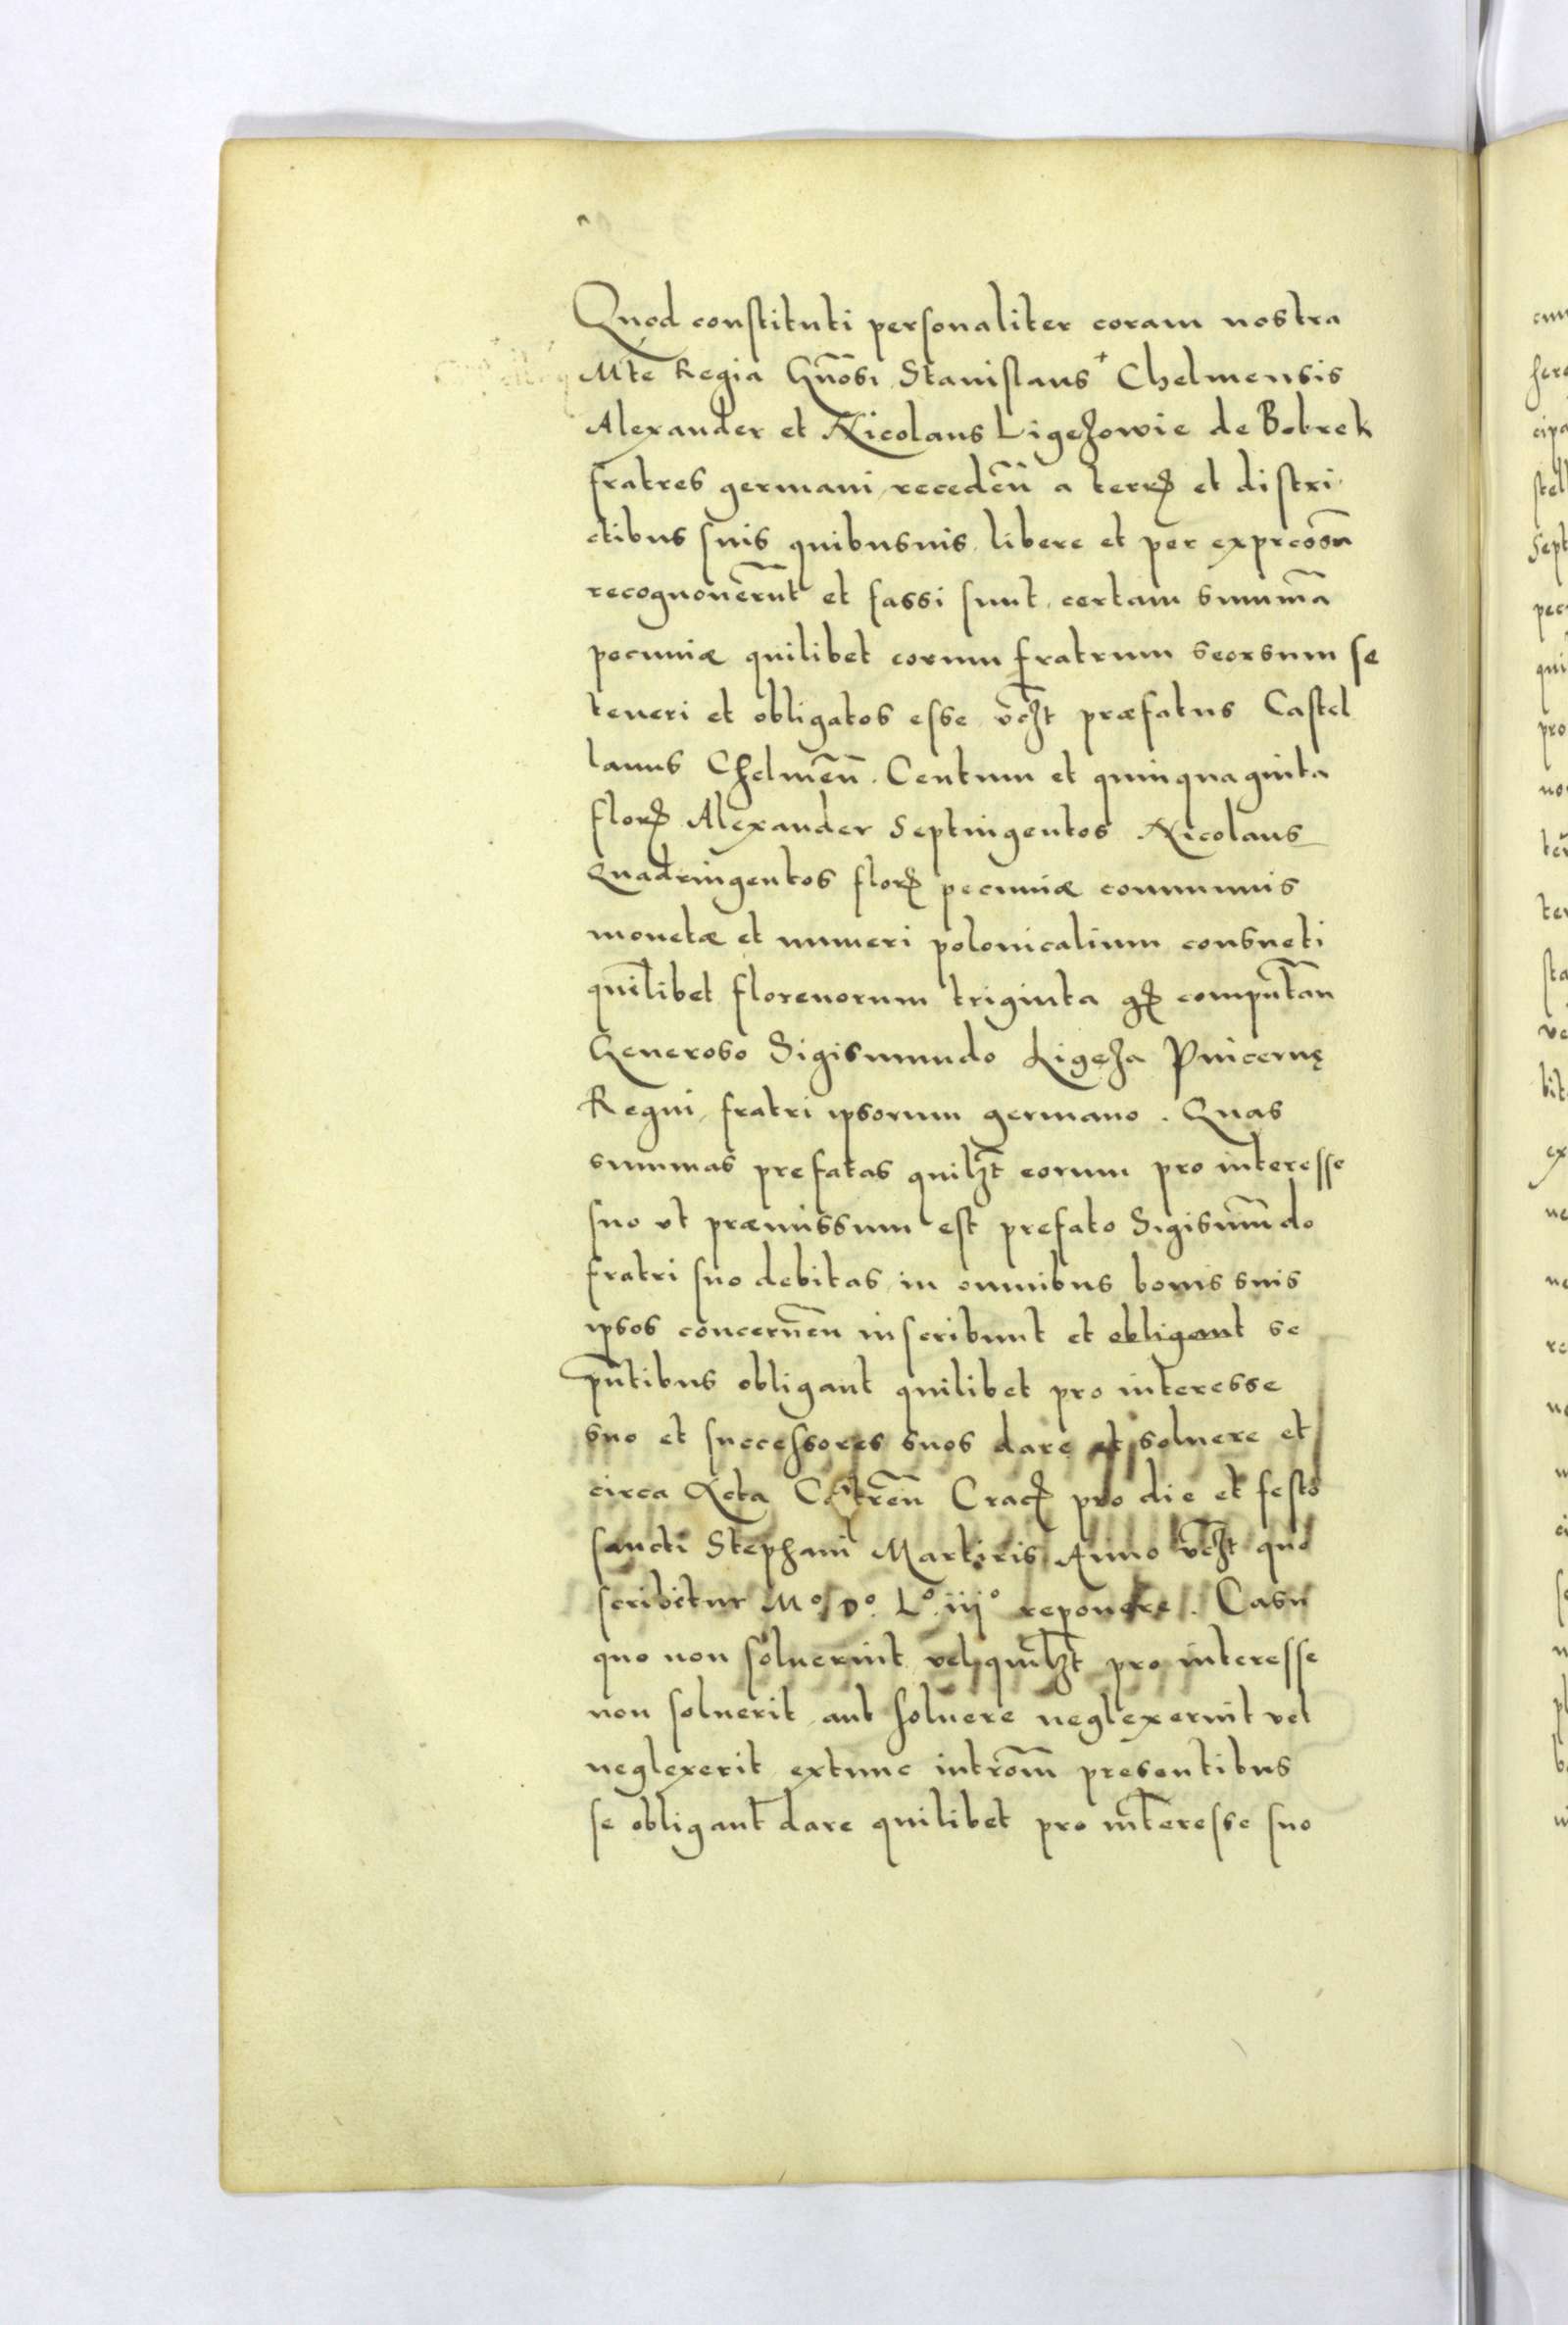 Quod constituti personaliter coram nostra
Mte Regia Gn̄osi Stanislaus + Chelmensis
Alexander et Nicolaus Ligezowie de Bobrek
fratres germani, receden̄ a terrꝭ et distri
ctibus suis quibusuis, libere et per expressū
recognouerūt et fassi sunt, certam summā
pecuniæ quilibet eorum fratrum seorsum se
teneri et obligatos esse vcꝫt præfatus Castel
lanus Chelmēn. Centum et quinquaginta
florꝭ Alexander Septingentos Nicolaus
Quadringentos florꝭ pecuniæ communis
monetæ et numeri polonicalium consueti
quēlibet florenorum triginta gꝭ computan̄
Generoso Sigismundo Ligeza Pincernę
Regni, fratri ipsorum germano. Quas
summas prefatas quilꝫt eorum pro interesse
suo vt præmissum est prefato Sigismūdo
fratri suo debitas, in omnibus bonis suis
ipsos concernēn inscribunt et obligant se
pn̄tibus obligant quilibet pro interesse
suo et successores suos dare et soluere et
circa Acta Castren̄ Cracꝭ pro die et festo
sancti Stephani Martiris Anno vcꝫt quo
scribitur Mº Dº. Lº. iijº reponere. Casu
quo non soluerint vel quilꝫt pro interesse
non soluerit, aut soluere neglexerint vel
neglexerit extunc introm̄ presentibus
se obligant dare quilibet pro interesse suo